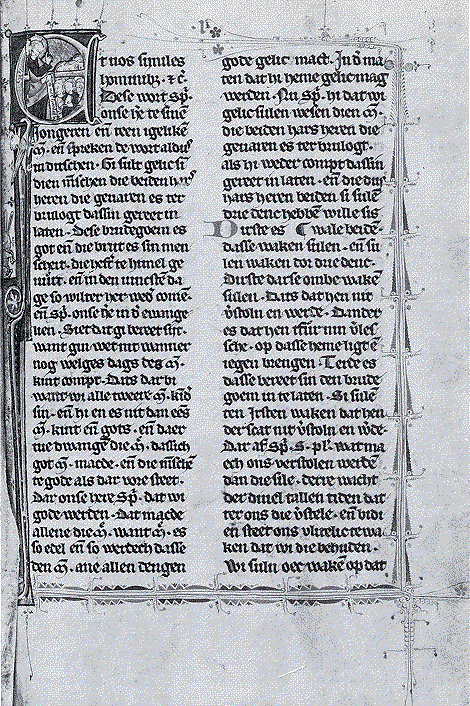 t uos similes
hominibz · ⁊ c̄ ·
Dese wort sp̄
onse h̄e te sinē
Jongeren · en̄ teen igelikē
m̄ · en̄ spreken de wort aldus
in ditschen · Gi sult gelic si
dien mēschen die beiden hars
heren die geuaren es ter
brulogt dassin gereet in
laten · Dese brudegoem es
got en̄ die brut es sin men
scheit · die heft te himel ge
uurt · en̄ in den
ge so wilter her wed comē
en̄ sp̄ · onse h̄e in d̄ ewinge
lien · Siet dat gi bereet sijt ·
want gi en wet nit wanner
nog welges dags des m̄ ·
kint compt · Dats dat bi
want wi alle tweere m̄ · kīd
sin · en̄ hi en es nit dan ees
m̄ · kint en̄ gots · en̄ daer
tue dwanget die m̄ · dassich
got m̄ · macde · en̄ die mēsche
te gode als dar vore steet ·
Dar onse here sp̄ · dat wi
gode werden · Dat macde
allene die m̄ · want m̄ · es
so edel en̄ so werdech dasse
den m̄ · ane allen dengen
gode gelic mact · In d̄ ma
ten dat hi heme gelic mag
werden · Nu sp̄ · hi dat wi
gelic sulen wesen dien m̄ ·
die beiden hars heren die
geuaren es ter brulogt ·
als hi weder compt dassin
gereet in laten · en̄ die dus
hars heren beiden si sulē
drie denc hebbē wille sis
Dirste es wale beidē ·
dasse waken sulen · en̄ su
len waken dor drie denc ·
Dirste dar se ombe wakē
sulen · Dats dat hen nit
v̄stoln en werde · Dander
es dat hen tfiur nin v̄les
sche · op dasse heme ligt ē
iegen brengen · Terde es
dasse bereet sin den brude
goem in te laten · Si sulē
ten irsten waken dat hen
der scat nit v̄stoln en w̄de ·
Dar af sp̄ · S · pl̄ · wat ma
ech ons verstolen werdē
dan die sile · dere wacht
der diuel tallen tiden dat
ter ons die v̄stele · en̄ bidi
en steet ons vlitelic te wa
ken dat wi die behuden ·
Wi suln oec wakē op dat